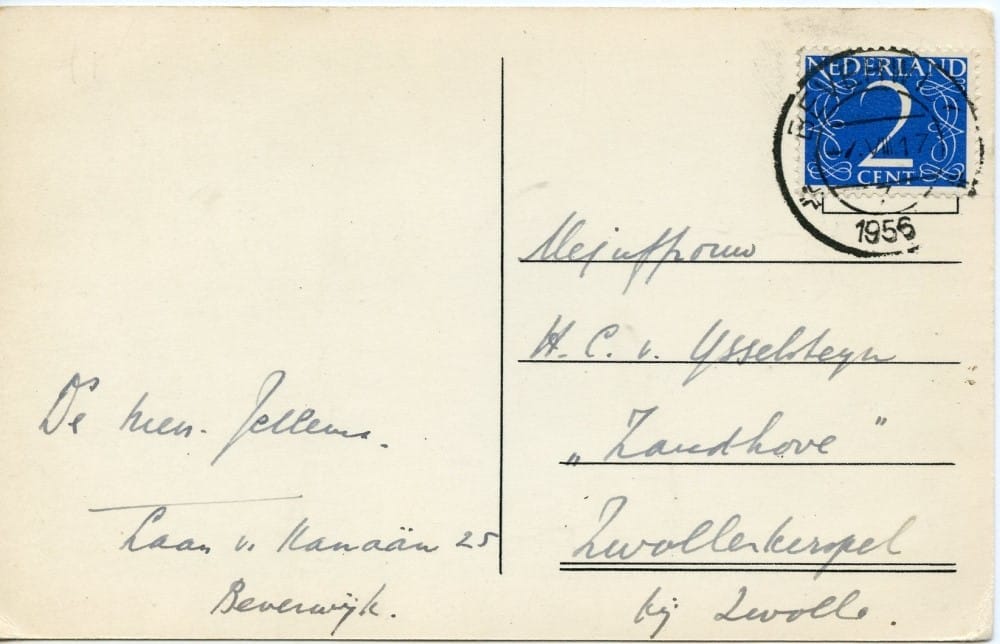 NEDERLAND
2
CENT
BEVERWIJK
-7.VIII.17
1956
Mejuffrouw
H. C. v. Ysselsteyn
„Zandhove”
Zwollerkerspel
bij Zwolle.
De Men. Jellema.
Laan v. Kanaän 25
Beverwijk.